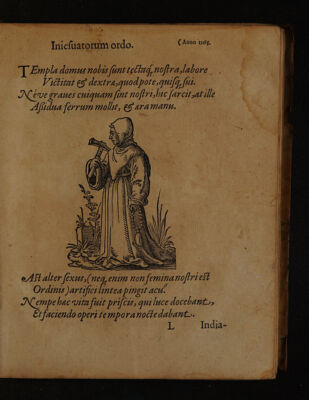 Iniesuatorum ordo. (Anno 1365.
TEmpla domus nobis sunt tectaq́, nostra, labore
Victitat & dextra, quod pote, quisq́, sui.
Neve graves cuiquam sint nostri, hic sarcit, at ille
Assidua ferrum mollit, & æra manu.
Ast alter sexus, (neq, enim non femina nostri est
Ordinis) artifici lintea pingit acu.
Nempe hæc vita fuit priscis, qui luce docebant,
Et faciendo operi tempora nocte dabant.
L India-